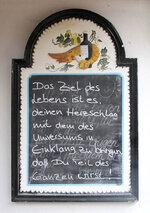 Das Ziel des
Lebens ist es,
deinen Herzschlag
mit dem des
Universums in
Einklang zu bringen,
daß Du Teil des
Ganzen wirst!